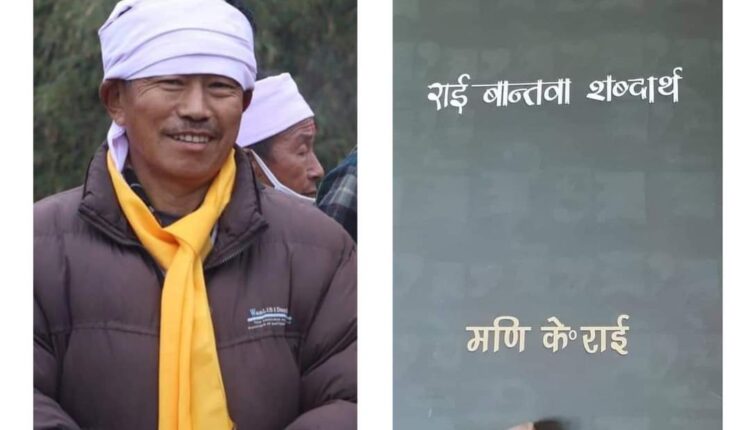 राई बान्तवा शब्दार्थ
मणि के॰ राई